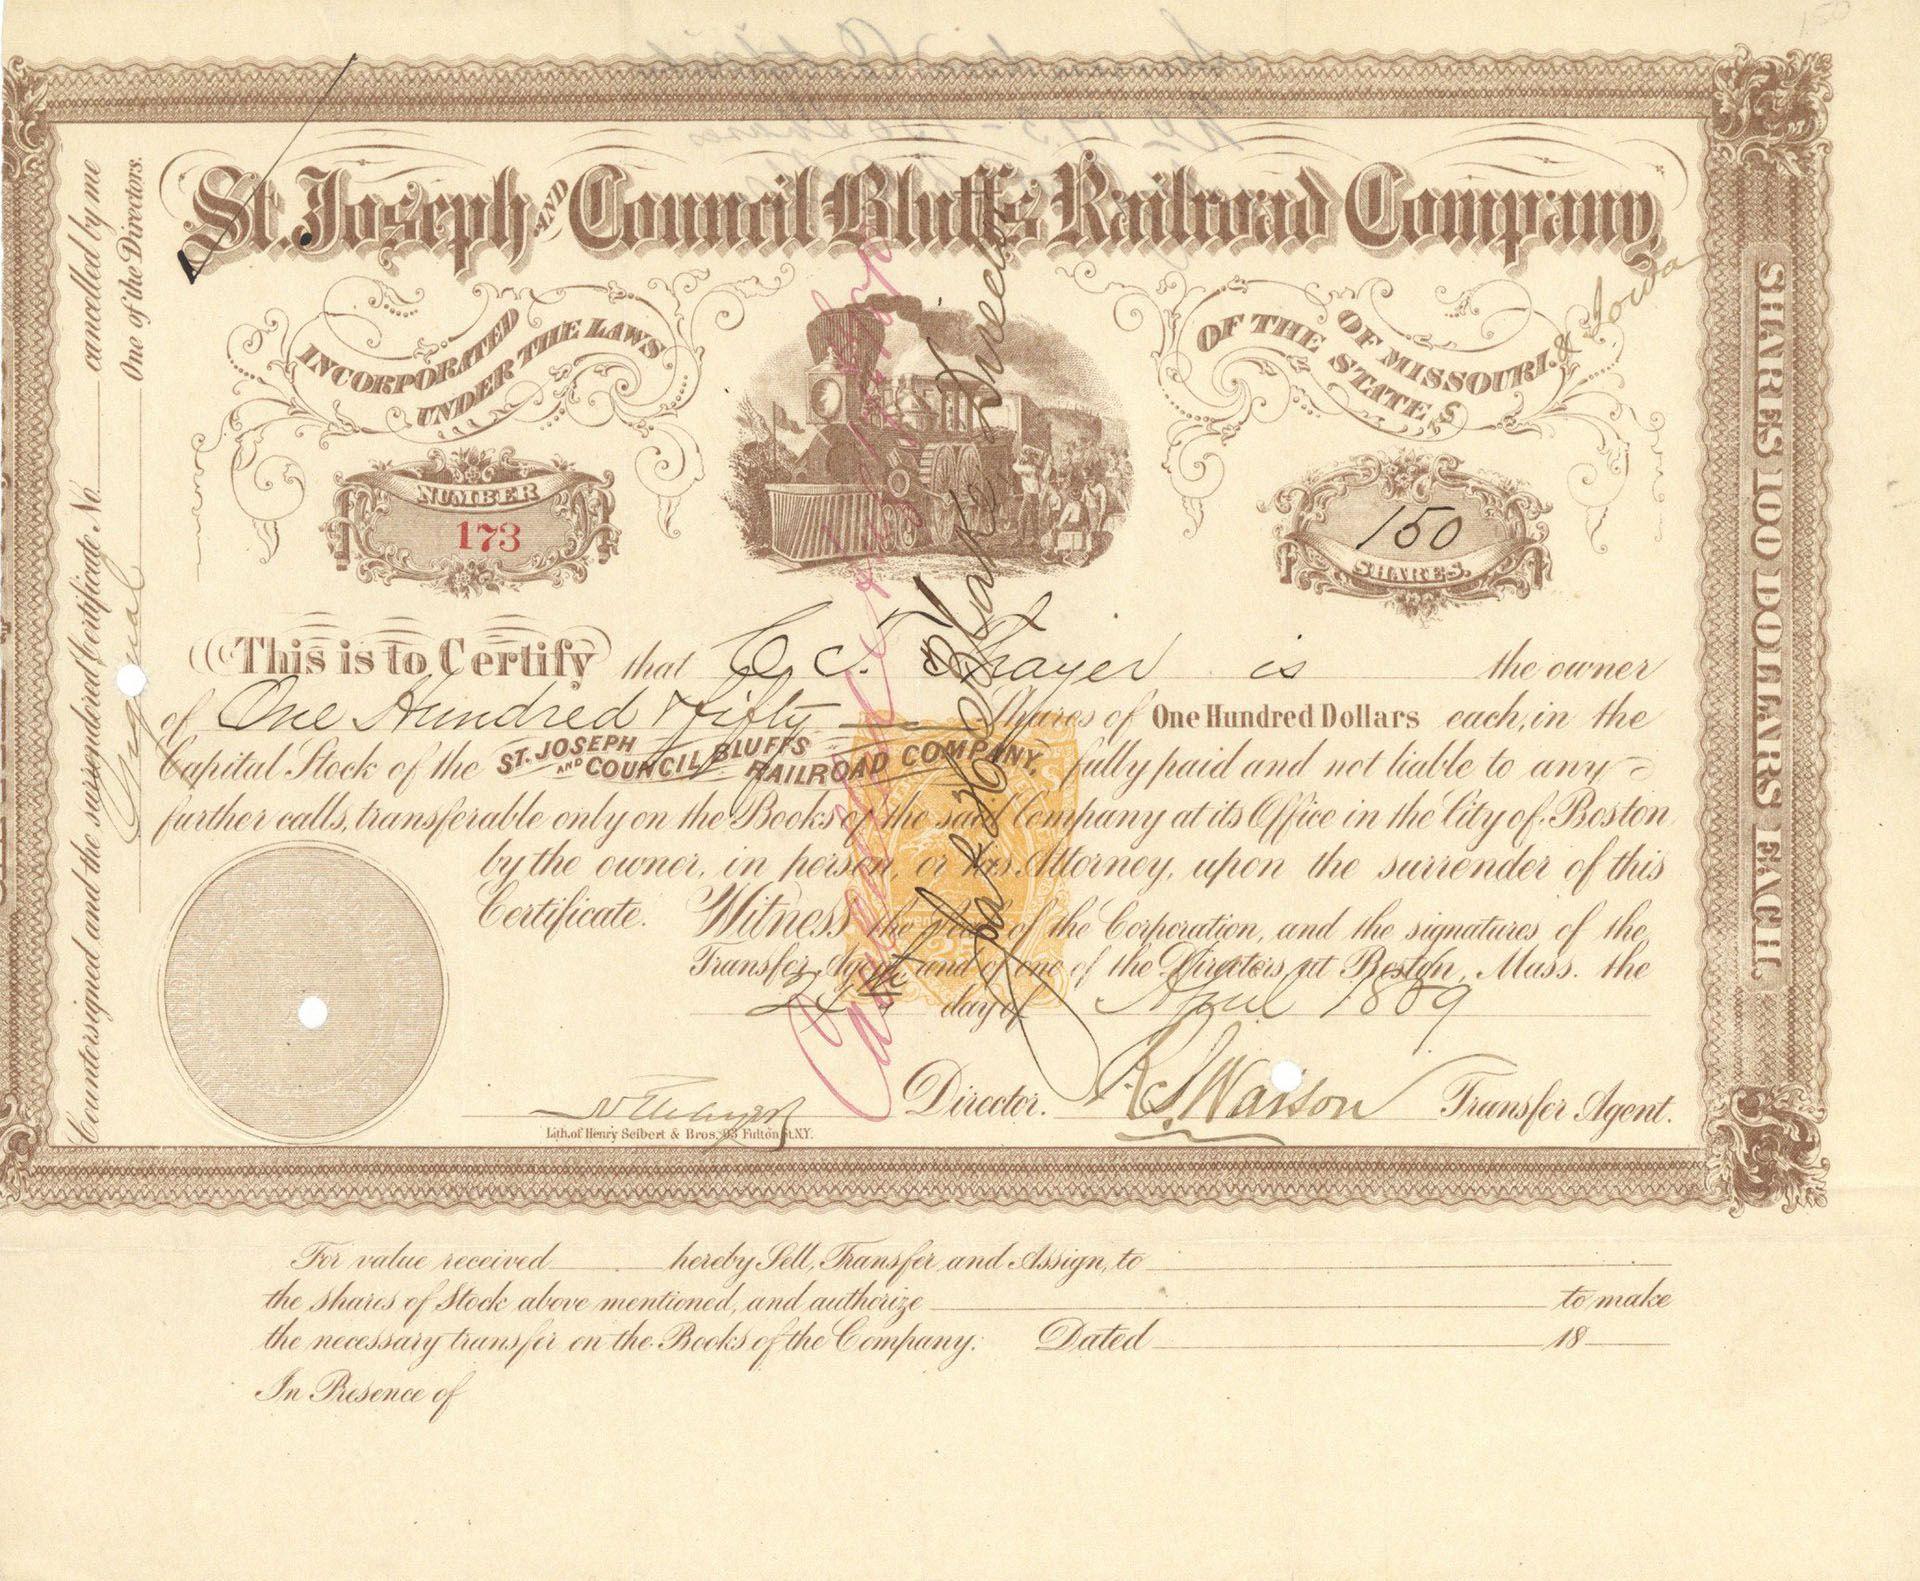 150
St. Joseph AND Council Bluffs Railroad Company,
INCORPORATED UNDER THE LAWS
OF THE STATE S OF MISSOURI. & Iowa
NUMBER
173
150
SHARES.
This is to Certify that C. C. T. Thayer is the owner
of One Hundred & fifty Shares of One Hundred Dollars each, in the
Capital Stock of the ST. JOSEPH AND COUNCIL BLUFFS RAILROAD COMPANY, fully paid and not liable to any
further calls, transferable only on the Books of the said Company at its Office in the City of Boston
by the owner, in person, or his Attorney, upon the surrender of this
Certificate. Witness the Seal of the Corporation, and the signatures of the
Transfer Agent and of one of the Directors at Boston, Mass. the
day of April 1889
Director. Transfer Agent.
Lith. of Henry Seibert & Bros. 93 Fulton St. N.Y.
Countersigned and the surrendered Certificate No. cancelled by me
Original One of the Directors.
SHARES 100 DOLLARS EACH.
For value received hereby Sell, Transfer and Assign, to
the shares of Stock above mentioned, and authorize to make
the necessary transfer on the Books of the Company: Dated 18
In Presence of